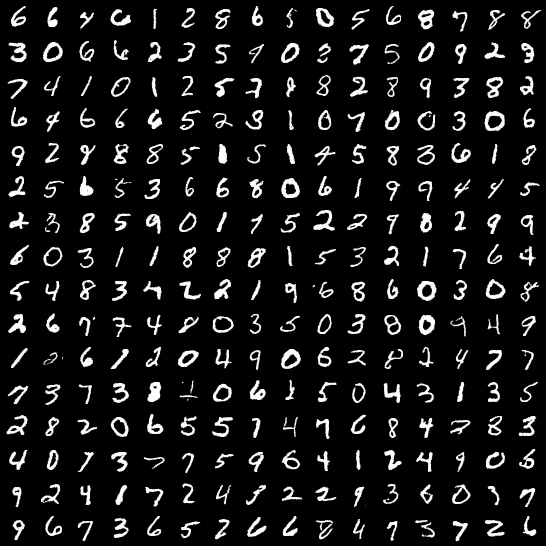 6 6 4 6 1 2 8 6 5 0 5 6 8 7 8 8
3 0 6 6 2 3 5 9 0 3 7 5 0 9 2 3
7 4 1 0 1 2 5 7 8 8 2 8 9 3 8 2
6 4 6 6 6 5 2 3 1 0 7 0 0 3 0 6
9 2 9 8 8 5 1 5 1 4 5 8 3 6 1 8
2 5 6 5 3 6 6 8 0 6 1 9 9 4 4 5
2 3 8 5 9 0 1 7 5 2 2 9 8 2 9 9
6 0 3 1 1 8 8 8 1 5 3 2 1 7 6 4
5 4 8 3 4 2 2 1 9 6 8 6 0 3 0 8
2 6 7 7 4 8 0 3 5 0 3 8 0 9 4 9
1 2 6 1 2 0 4 9 0 6 2 8 2 4 7 7
7 3 7 3 8 1 0 6 1 5 0 4 3 1 3 5
2 8 2 0 6 5 5 7 4 7 6 8 4 2 8 3
4 0 7 3 7 7 5 9 6 4 1 2 4 9 0 5
9 2 4 1 7 2 4 3 2 2 9 3 6 0 3 7
9 6 7 3 6 5 2 6 6 8 4 7 3 7 2 6